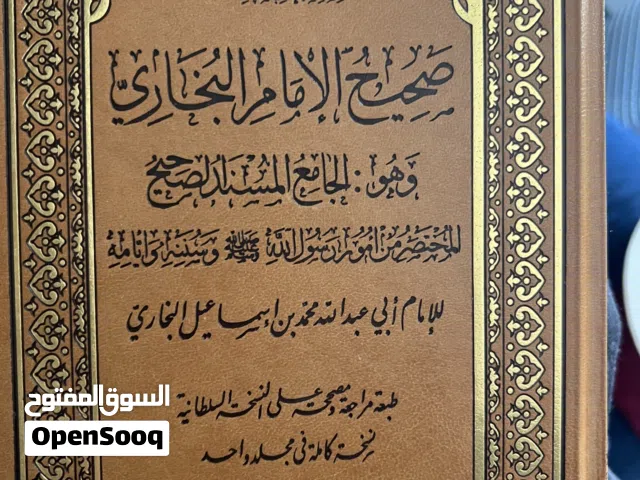 صَحِيحُ الإِمَامِ البُخَارِيِّ
وَهُوَ: الجَامِعُ المُسْنَدُ الصَّحِيحُ
المُخْتَصَرُ مِنْ أُمُورِ رَسُولِ اللَّهِ ﷺ وَسُنَنِهِ وَأَيَّامِهِ
للإمام أبي عبد الله محمد بن إسماعيل البخاري
طبعة مراجعة ومصححة على النسخة السلطانية
نسخة كاملة في مجلد واحد
السوق المفتوح
OpenSooq